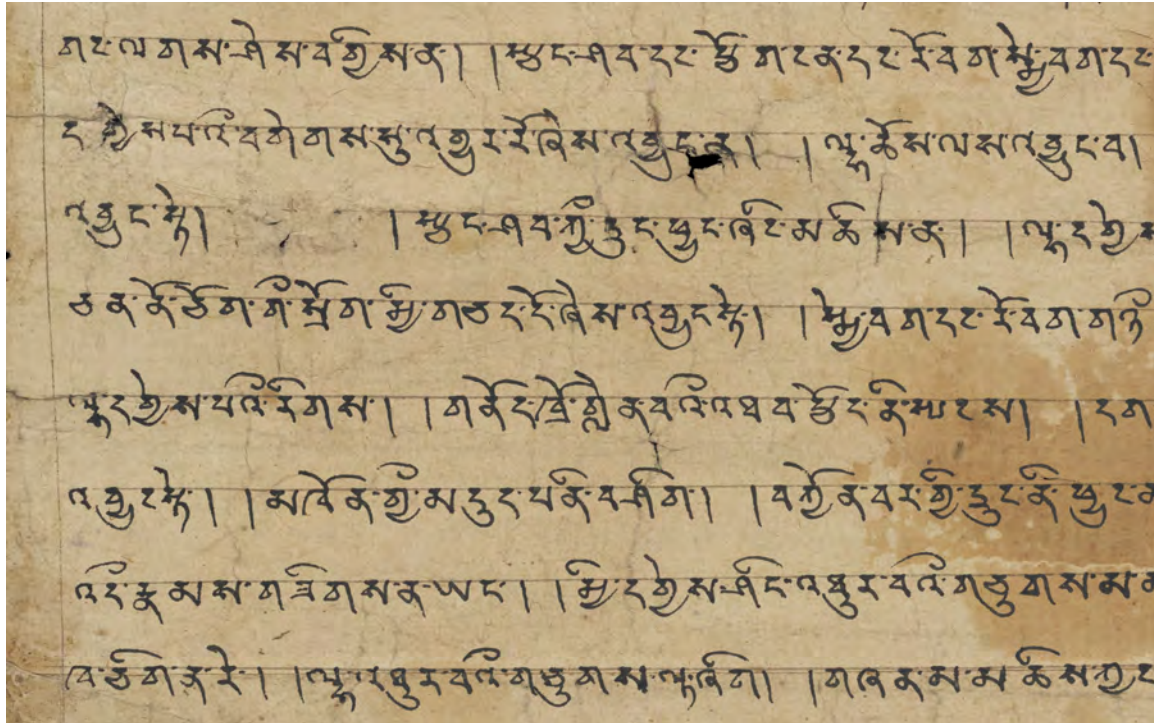 གང་ལགས་ཤེས་བགྱིས་ན། །སྟུང་ཤབ་དང་སྤྱོ་གང་ན་དང་རོ་བག་སྨྱ་བག་དང་
ད་གྱེས་པའི་བགེགས་སུ་འགྱུར་རོ་ཞེས་འབྱུང་ན། །ལྷ་ཆོས་ལས་འབྱུང་བ།
འབྱུང་སྟེ། །སྟུང་ཤབ་ཀྱི་དུང་ཕྱུང་ཞིང་མཆིས་ན། །ལྷ་དགྱེས
ཅན་ནོ་ཅོག་གི་སྲོག་མྱི་གཅད་དོ་ཞེས་འབྱུད་སྟེ། །སྨྱ་བག་དང་རོ་བག་གཉི
ལྷ་དགྱེས་པའི་རིགས། །གནོད་ཁྲོ་གླེན་བའི་འཐབ་སྤྱོད་ནི་སྤངས། །དག
འབྱུང་སྟེ། །མཁོན་གྱི་མདུད་པ་ནི་བཤིག །བཀྱོན་བར་གྱི་དུང་ནི་ཕྱུང་མ
འདི་རྣམས་གཟིགས་ན་ཡང། །མྱི་དགྱེས་ཤིང་འཕུར་བའི་གཙུགས་མ་མ
ཁ་ཅིག་ན་རེ། །ལྷ་འཕུར་བའི་གཙུགས་ལྟ་ཞིག །གཞན་མ་མཆིས་ཀྱང